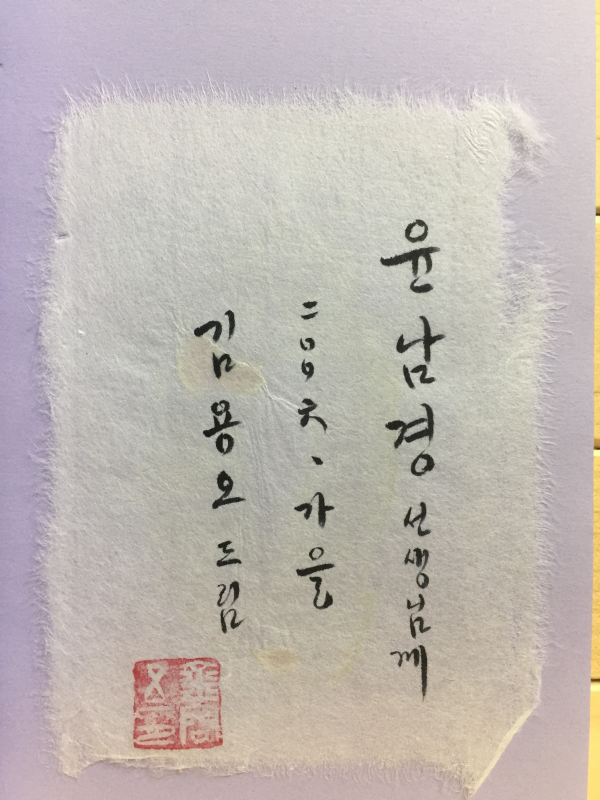 윤남경 선생님께
二〇〇六、가을
김용오 드림